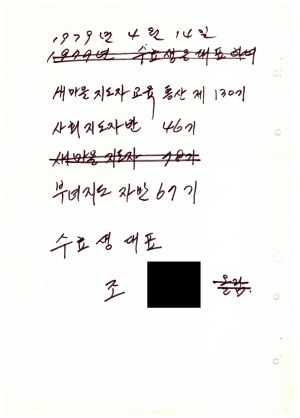 1979년 4월 14일
1979년 수료생을 대표하여
새마을 지도자 교육 통산 제 130기
사회 지도자반 46기
새마을 지도자 78기
부녀지도자반 67기
수료생 대표
조 올림